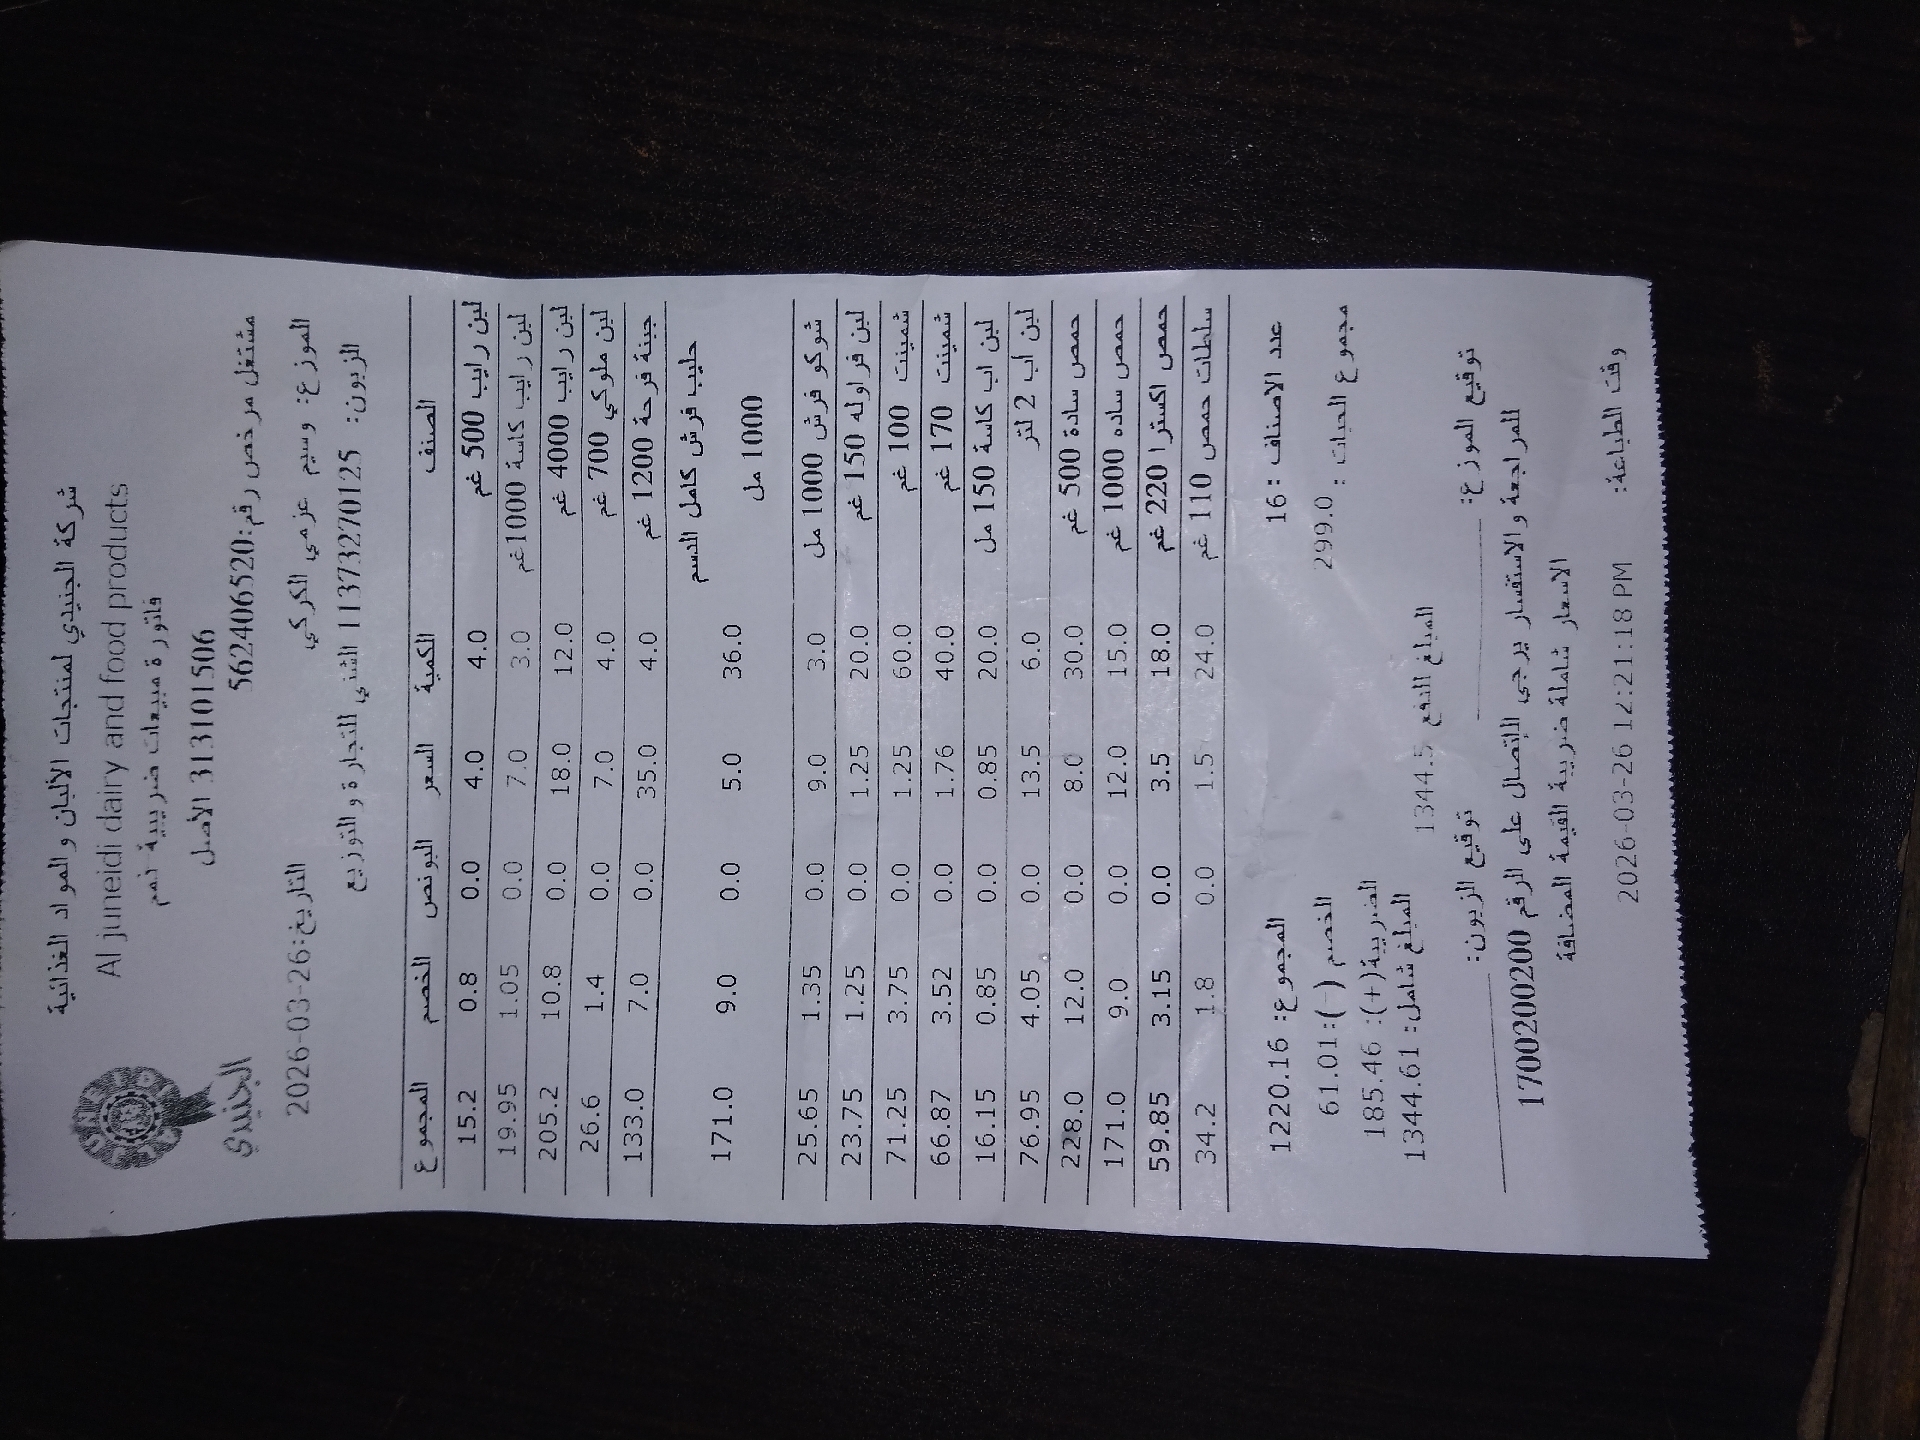 شركة الجنيدي لمنتجات الألبان والمواد الغذائية
Al juneidi dairy and food products
فاتورة مبيعات ضريبية نعم
313101506 الأصل
الجنيدي
مشتغل مرخص رقم:562406520
الموزع: وسيم عزمي الكركي التاريخ:2026-03-26
الزبون: 1137327012‎5 الشني للتجارة والتوزيع
الصنف الكمية السعر البونص الخصم المجموع
لبن رايب 500 غم 4.0 4.0 0.0 0.8 15.2
لبن رايب كاسة 1000غم 3.0 7.0 0.0 1.05 19.95
لبن رايب 4000 غم 12.0 18.0 0.0 10.8 205.2
لبن ملوكي 700 غم 4.0 7.0 0.0 1.4 26.6
جبنة فرحة 1200 غم 4.0 35.0 0.0 7.0 133.0
حليب فرش كامل الدسم
1000 مل 36.0 5.0 0.0 9.0 171.0
شوكو فرش 1000 مل 3.0 9.0 0.0 1.35 25.65
لبن فراوله 150 غم 20.0 1.25 0.0 1.25 23.75
شمينت 100 غم 60.0 1.25 0.0 3.75 71.25
شمينت 170 غم 40.0 1.76 0.0 3.52 66.87
لبن اب كاسة 150 مل 20.0 0.85 0.0 0.85 16.15
لبن أب 2 لتر 6.0 13.5 0.0 4.05 76.95
حمص سادة 500 غم 30.0 8.0 0.0 12.0 228.0
حمص ساده 1000 غم 15.0 12.0 0.0 9.0 171.0
حمص اكسترا 220 غم 18.0 3.5 0.0 3.15 59.85
سلطات حمص 110 غم 24.0 1.5 0.0 1.8 34.2
عدد الاصناف :16 المجموع: 1220.16
مجموع الحبات : 299.0 الخصم (-):61.01
الضريبة(+): 185.46
المبلغ للدفع 1344.5 المبلغ شامل: 1344.61
توقيع الموزع: توقيع الزبون:
للمراجعة والاستفسار يرجى الاتصال على الرقم 1700200200
الاسعار شاملة ضريبة القيمة المضافة
وقت الطباعة: 2026-03-26 12:21:18 PM